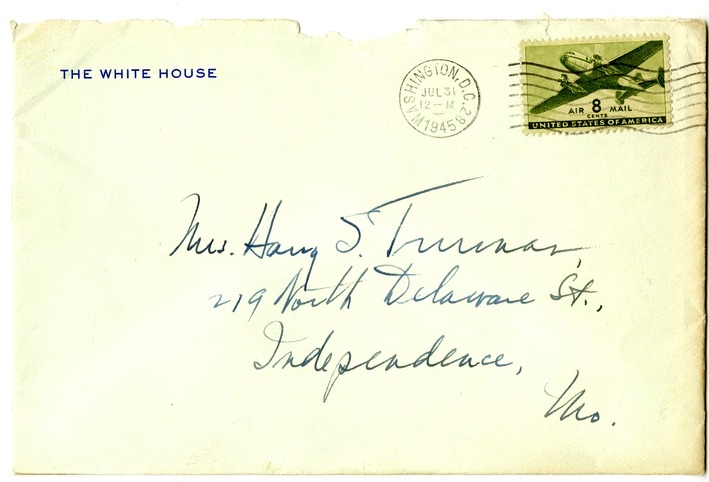 THE WHITE HOUSE
WASHINGTON, D.C. 28
JUL 31
12-M
1945
AIR 8 MAIL
CENTS
UNITED STATES OF AMERICA
Mrs. Harry S. Truman,
219 North Delaware St.,
Independence,
Mo.